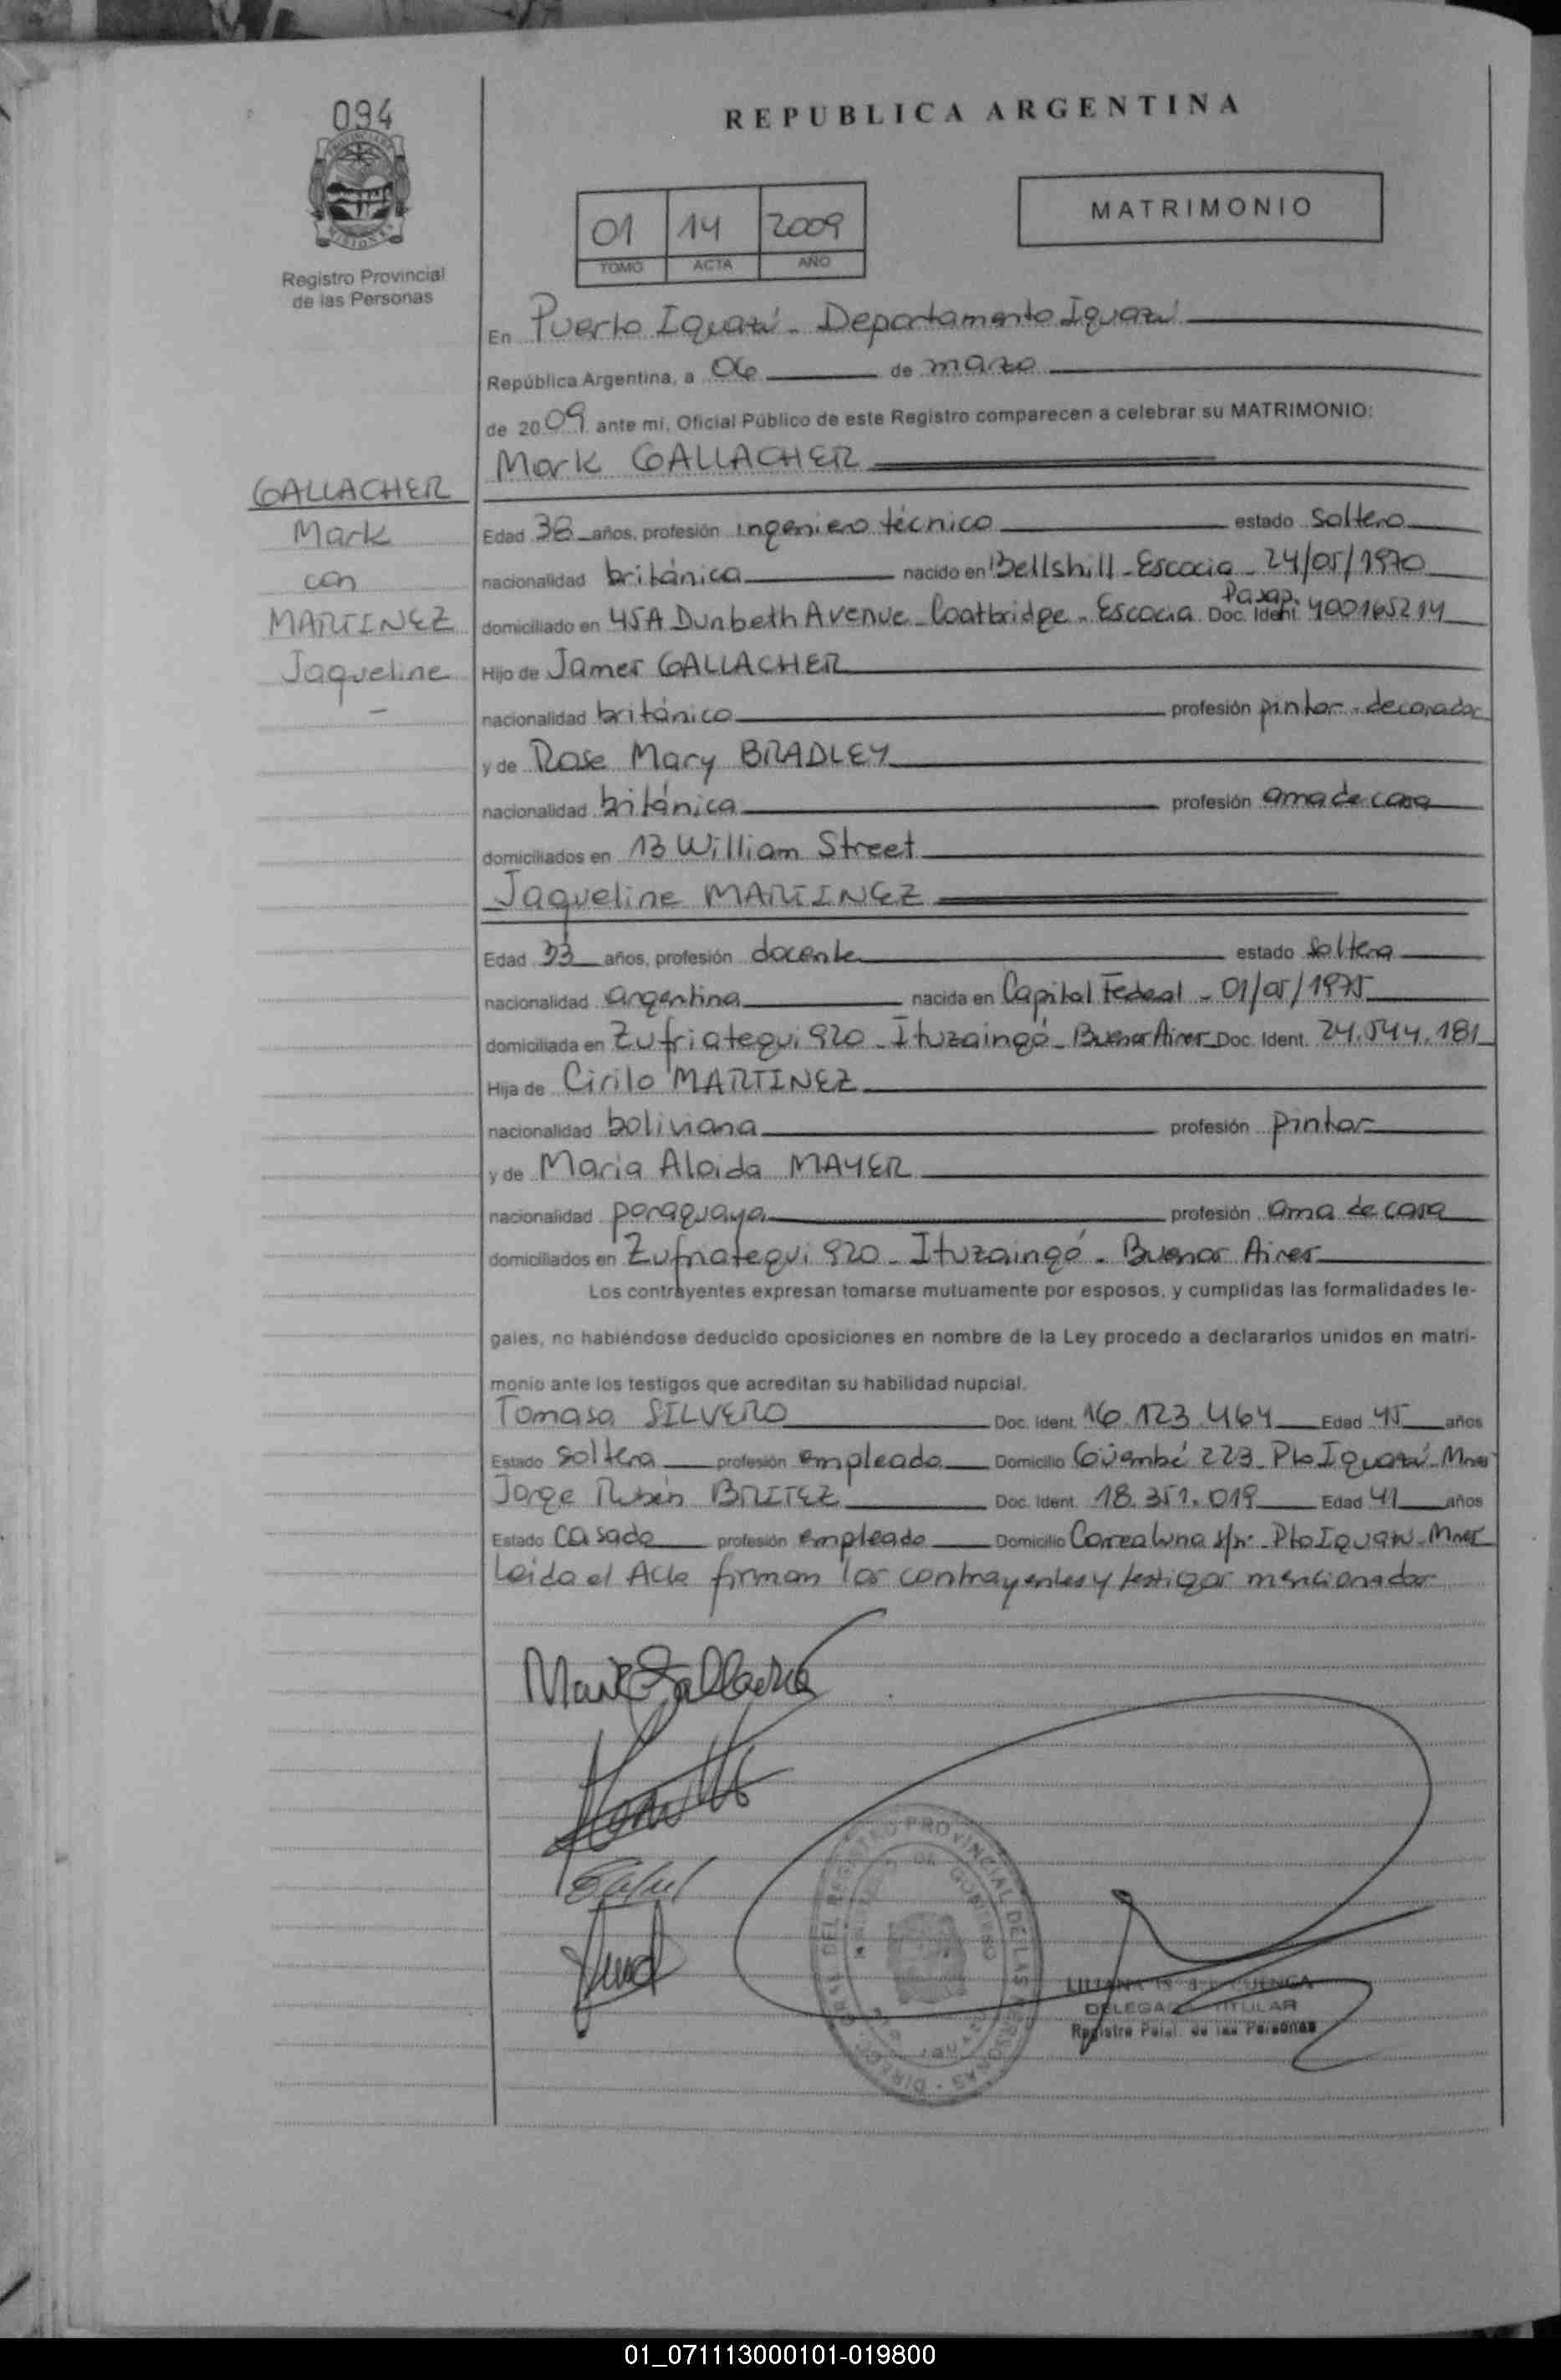 094
REPUBLICA ARGENTINA
01 14 2009
TOMO ACTA AÑO
MATRIMONIO
Registro Provincial
de las Personas
En Puerto Iguazú - Departamento Iguazú
República Argentina, a 06 de marzo
de 2009 ante mí, Oficial Público de este Registro comparecen a celebrar su MATRIMONIO:
Mark GALLACHER
GALLACHER
Mark
con
MARTINEZ
Jaqueline
Edad 38 años, profesión ingeniero técnico estado soltero
nacionalidad británica nacido en Bellshill - Escocia - 24/05/1970
domiciliado en 45A Dunbeth Avenue - Coatbridge - Escocia Pasap. Doc. Ident. 400165214
Hijo de James GALLACHER
nacionalidad británico profesión pintor - decorador
y de Rose Mary BRADLEY
nacionalidad británica profesión ama de casa
domiciliados en 13 William Street
Jaqueline MARTINEZ
Edad 33 años, profesión docente estado soltera
nacionalidad argentina nacida en Capital Federal - 01/05/1975
domiciliada en Zufriategui 920 - Ituzaingó - Buenos Aires Doc. Ident. 24.544.181
Hija de Cirilo MARTINEZ
nacionalidad boliviana profesión pintor
y de Maria Aloida MAYER
nacionalidad paraguaya profesión ama de casa
domiciliados en Zufriategui 920 - Ituzaingó - Buenos Aires
Los contrayentes expresan tomarse mutuamente por esposos, y cumplidas las formalidades le-
gales, no habiéndose deducido oposiciones en nombre de la Ley procedo a declararlos unidos en matri-
monio ante los testigos que acreditan su habilidad nupcial.
Tomasa SILVERO Doc. Ident. 16.123.464 Edad 45 años
Estado soltera profesión empleada Domicilio Güembé 223 - Pto Iguazú - Mnes
Jorge Rubén BRITEZ Doc. Ident. 18.351.019 Edad 41 años
Estado casado profesión empleado Domicilio Correa Luna s/n - Pto Iguazú - Mnes
Leida el Acta firman los contrayentes y testigos mencionados
Mark Gallacher
LILIANA CUENCA
DELEGADA TITULAR
Registro Pcial. de las Personas
01_071113000101-019800